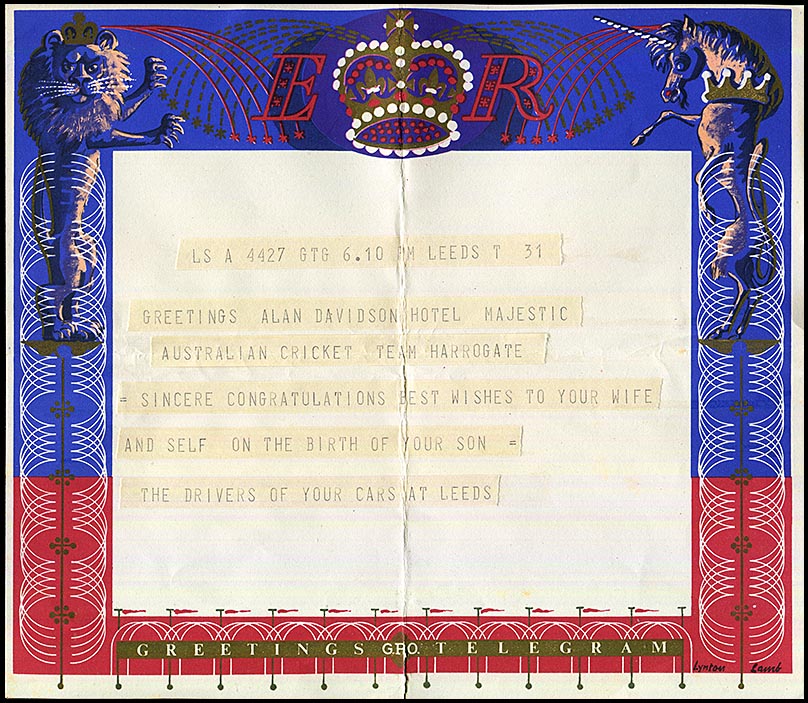 E R
LS A 4427 GTG 6.10 PM LEEDS T 31
GREETINGS ALAN DAVIDSON HOTEL MAJESTIC
AUSTRALIAN CRICKET TEAM HARROGATE
= SINCERE CONGRATULATIONS BEST WISHES TO YOUR WIFE
AND SELF ON THE BIRTH OF YOUR SON =
THE DRIVERS OF YOUR CARS AT LEEDS
GREETINGS G.P.O. TELEGRAM
Lynton Lamb